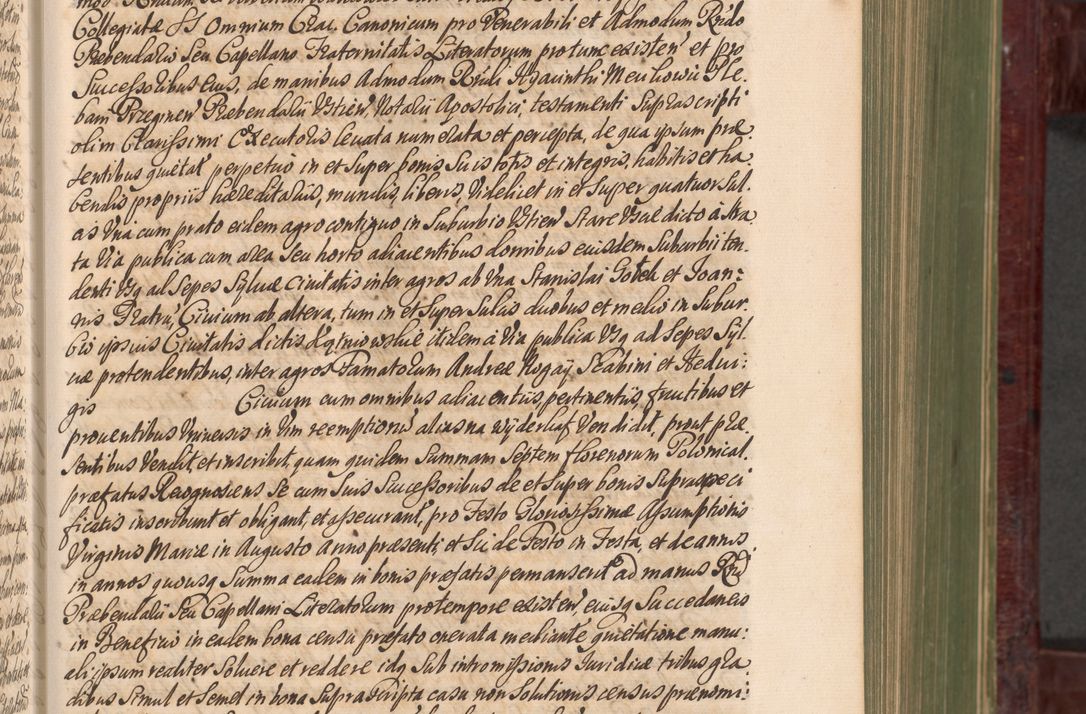 Collegiatæ SS Omnium Crac. Canonicum pro Venerabili et Admodum Rndo
Præbendario Seu Capellano Fraternitatis Literatorum pro tunc existen et pro
Successoribus Eius, de manibus Admodum Rndi Hyacinthi Ple-
bani Præbendarii Notarii Apostolici, testamenti Suprascripti
olim Clarissimi Executoris levata numerata et percepta, de qua ipsum præ-
sentibus quietat perpetuo in et Super bonis Suis totis et integris, habitis et ha-
bendis propriis hæreditariis, mundis, liberis, Videlicet in et Super quatuor Sul-
as Una cum prato eidem agro contiguo in Suburbio dicto à Stra-
ta Via publica cum area Seu horto adiacentibus domibus eiusdem Suburbii ten-
denti Usq ad Sepes Sylvæ Civitatis inter agros ab Una Stanislai et Joan:
nis Fratru Civium ab altera, tum in et Super Sulcis duobus et medio in Subur-
bio ipsius Civitatis dictis itidem à Via publica Usq ad Sepes Syl-
væ protendentibus, inter agros Famatorum Andreæ Rogaÿ Scabini et Hedui:
gis Civium cum omnibus adiacentiis, pertinentiis, fructibus et
proventibus Universis in Vim reemptionis alias na wyderkaf Vendidit, prout præ-
sentibus Vendit, et inscribit, quam quidem Summam Septem florenorum Polonical.
præfatus Recognoscens Se cum Suis Successoribus de et Super bonis Supraspeci
ficatis inscribunt et obligant, et assecurant, pro Festo Gloriosissimæ Assumptionis
Virginis Mariæ in Augusto Anno præsenti, et Sic de Festo in Festa, et de annis,
in annos quousq Summa eadem in bonis præfatis permanserit ad manus Rndi
Præbendarii Seu Capellani Literatorum pro tempore existen eiusq Succedaneis
in Beneficio in eadem bona censu præfato onerata mediante quietatione manu:
ali, ipsum realiter Solvere et reddere idq Sub intromissionis Juridicæ tribus gra
dibus Simul et Semel in bona Suprascripta casu non Solutionis census prænomi: